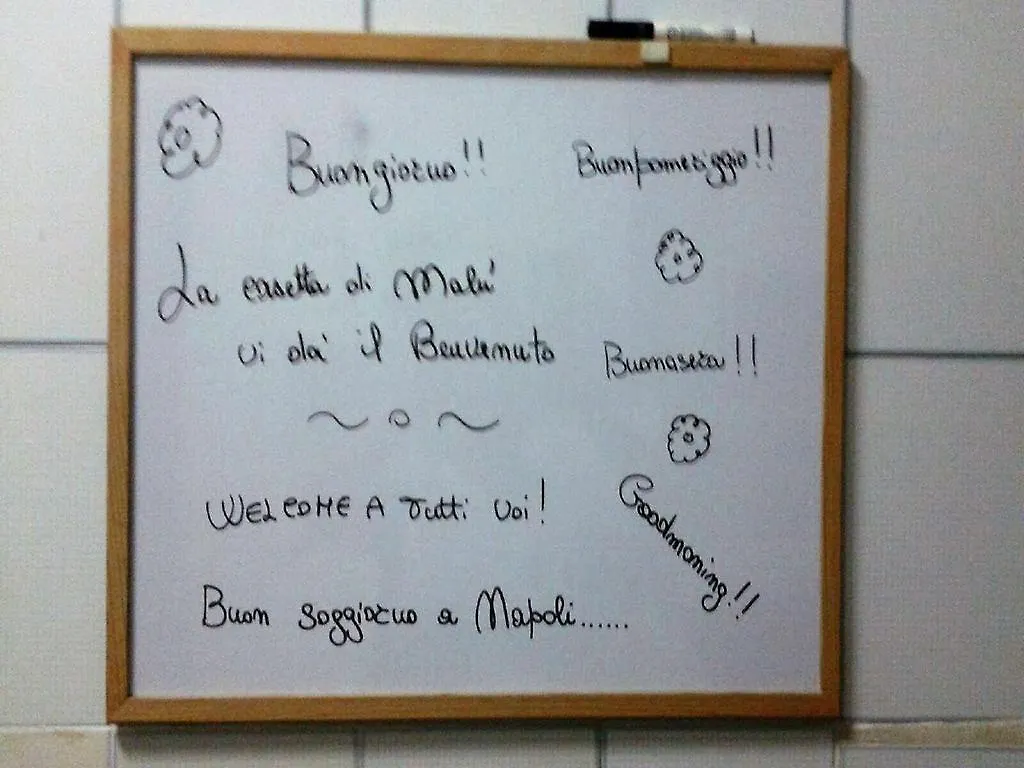 Buongiorno!!
Buonpomeriggio!!
La casetta di Malu'
vi da' il Benvenuto
Buonasera!!
WELCOME A Tutti Voi!
Goodmorning!!
Buon soggiorno a Napoli......